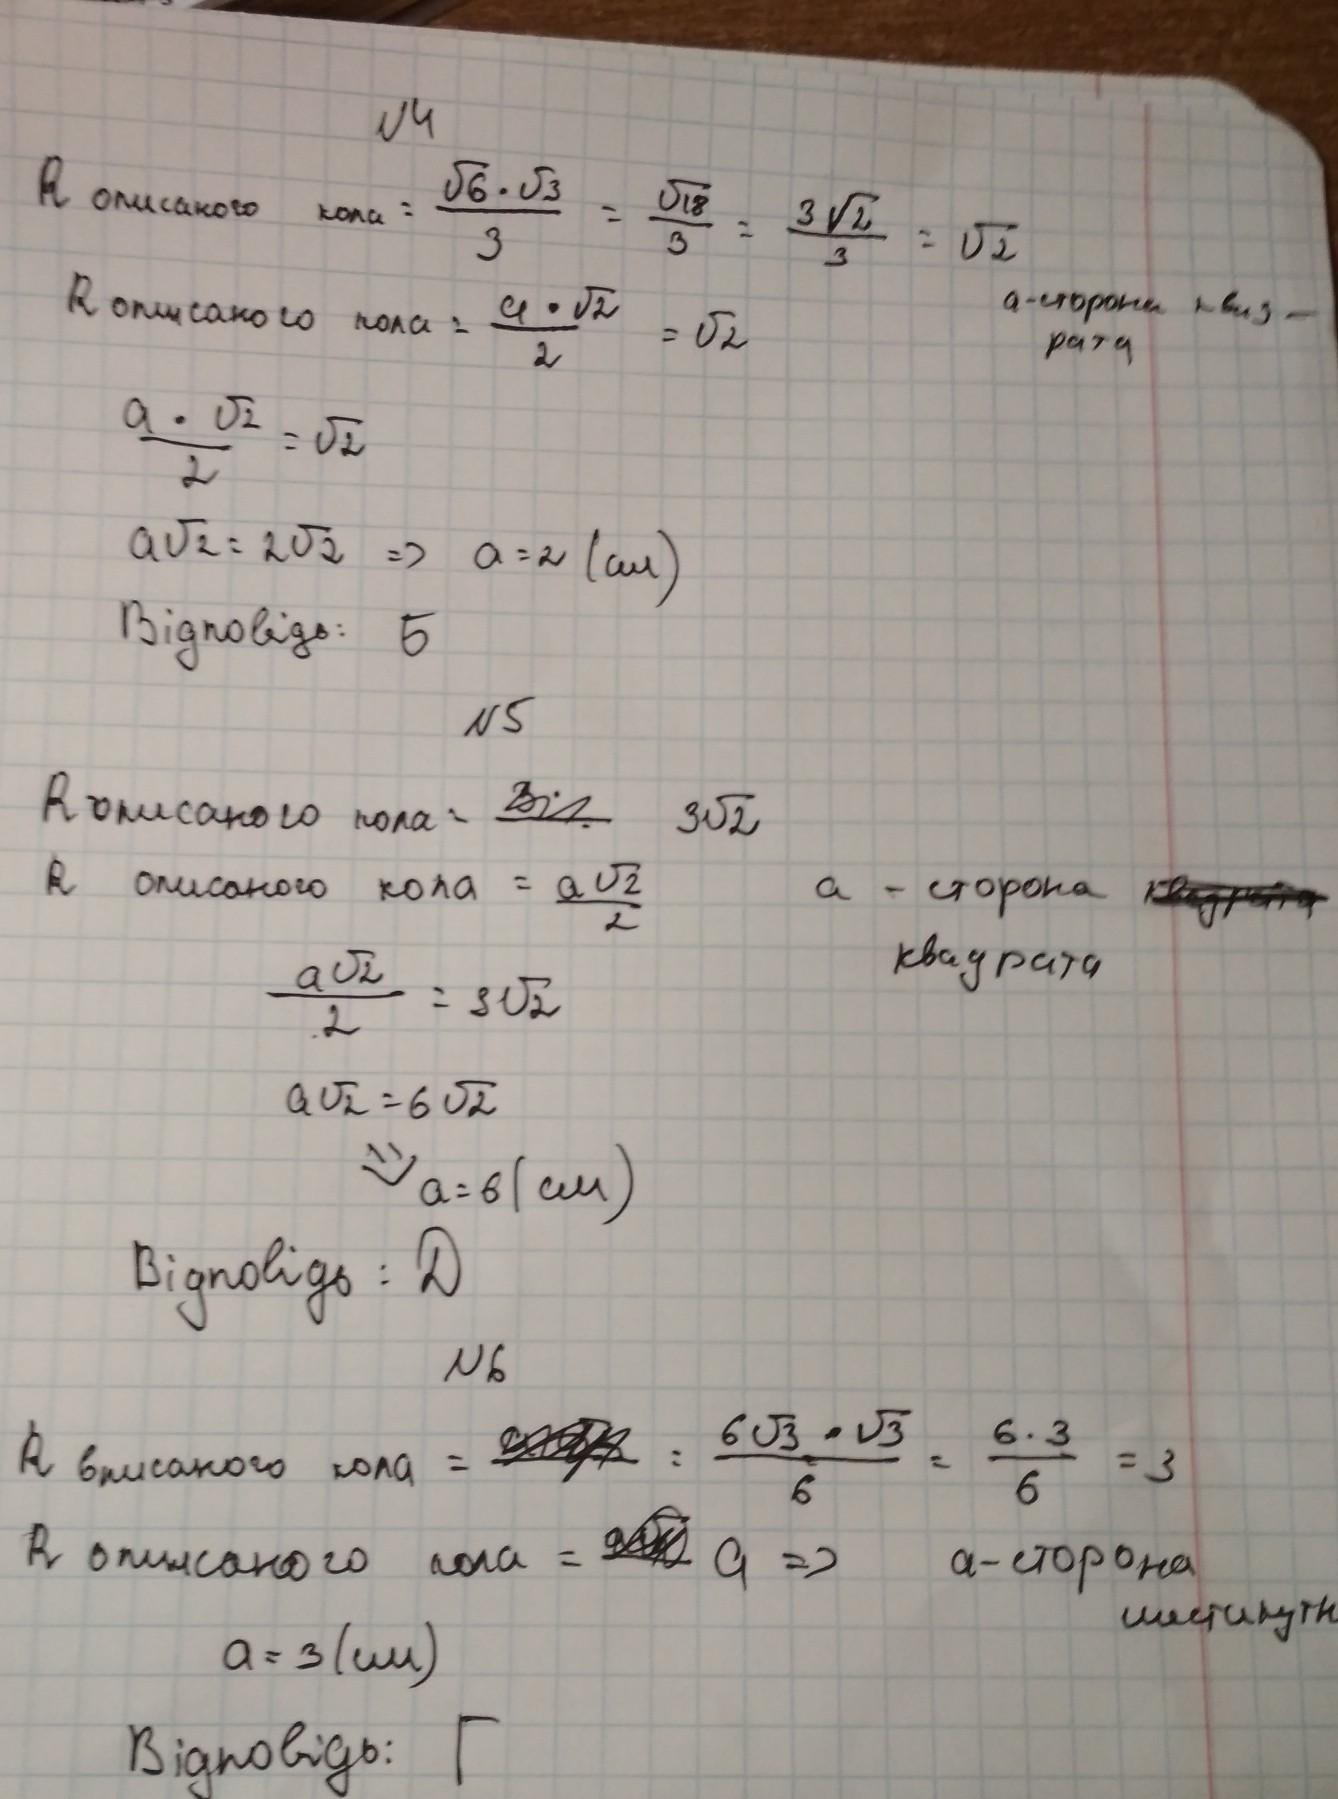 №4
R описаного кола = √6 · √3 / 3 = √18 / 3 = 3√2 / 3 = √2
R описаного кола = a · √2 / 2 = √2
a - сторона квад-
рата
a · √2 / 2 = √2
a√2 = 2√2 => a = 2 (см)
Відповідь: Б
№5
R описаного кола = 3√2
R описаного кола = a√2 / 2
a - сторона
квадрата
a√2 / 2 = 3√2
a√2 = 6√2
=> a = 6 (см)
Відповідь: Д
№6
R вписаного кола = = 6√3 · √3 / 6 = 6 · 3 / 6 = 3
R описаного кола = a => a - сторона
шестикутн
a = 3 (см)
Відповідь: Г